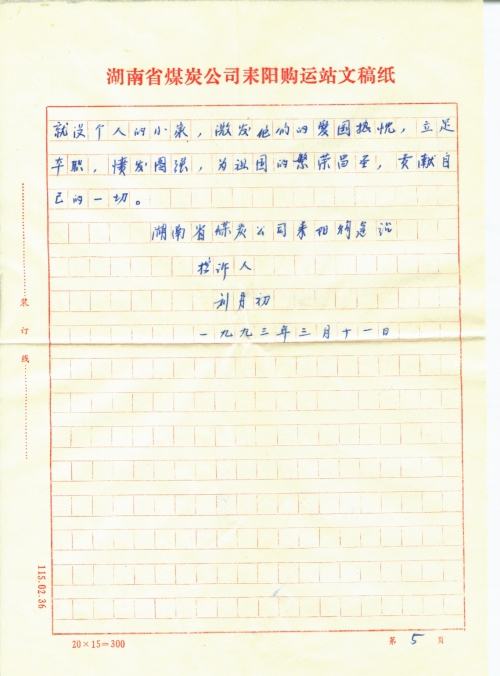 湖南省煤炭公司耒阳购运站文稿纸
就没个人的小家，激发他们的爱国热忱，立足
本职，愤发图强，为祖国的繁荣昌盛，贡献自
己的一切。
湖南省煤炭公司耒阳购运站
投诉人
利月初
一九九三年三月十一日
装订线
115.02.36
20×15=300
第 5 页